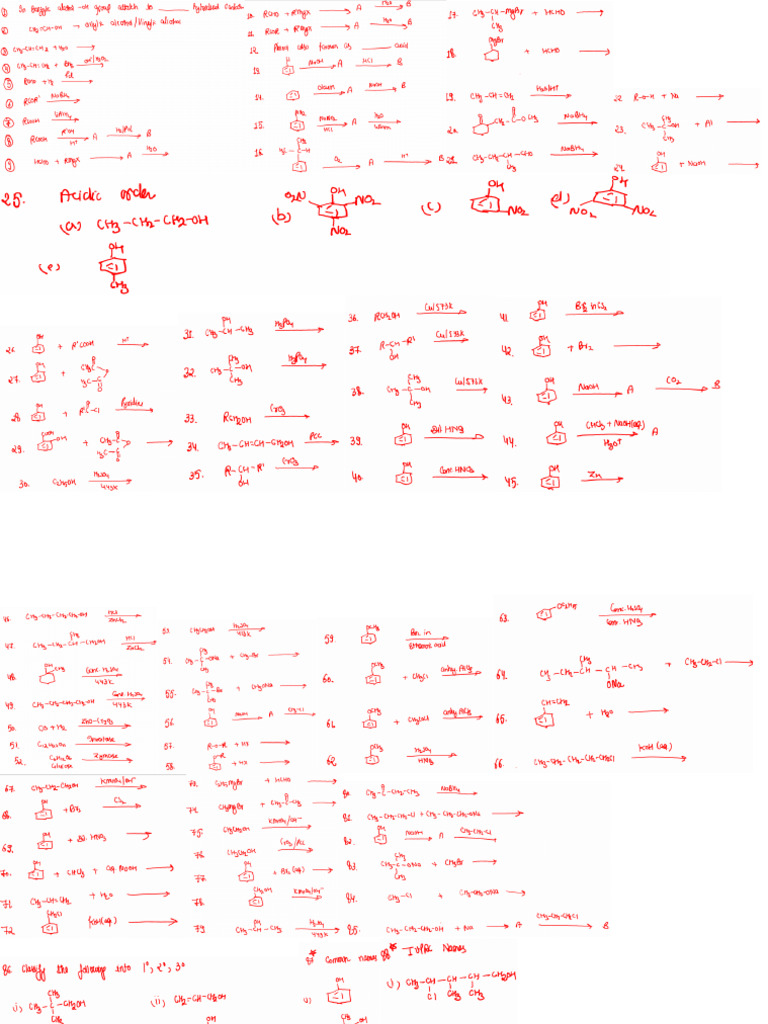 ① In benzylic alcohol -OH group attatch to ______ hybridised carbon
② CH₂=CH-OH → allylic alcohol/Vinylic alcohol
③ CH₃-CH=CH₂ + H₂O →
④ CH₃-CH=CH₂ + BH₃ OH⁻/H₂O₂ →
⑤ RCHO + H₂ Pd →
⑥ RCOR' NaBH₄ →
⑦ RCOOH LiAlH₄ →
⑧ RCOOH R'OH H⁺ → A H₂/Pd → B
⑨ HCHO + RMgX → A H₂O →
10. RCHO + R'MgX → A H₂O → B
11. RCOR + R'MgX → A H₂O → B
12. Phenol also known as ____ acid
13. NaOH → A HCl → B
14. Oleum → A NaOH → B
15. NH₂ NaNO₂ HCl → A H₂O Warm →
16. CH₃ H₃C-C-H O₂ → A H⁺ → B
17. CH₃-CH-MgBr + HCHO → CH₃
18. MgBr + HCHO →
19. CH₃-CH=CH₂ H₂O/H⁺ →
20. CH₂-C-O-CH₃ O NaBH₄ →
21. CH₃-CH₂-CH-CHO CH₃ NaBH₄ →
22. R-O-H + Na →
23. CH₃ CH₃-C-OH CH₃ + Al →
24. OH + NaOH →
25. Acidic order
(a) CH₃-CH₂-CH₂-OH (b) OH O₂N NO₂ NO₂ (c) OH NO₂ (d) OH NO₂ NO₂
(e) OH CH₃
26. OH + R'COOH H⁺ →
27. OH + CH₃-C O O H₃C-C O
28. OH + R-C-Cl O Pyridine →
29. COOH OH + CH₃-C O O H₃C-C O →
30. C₂H₅OH H₂SO₄ 443K →
31. OH CH₃-CH-CH₃ H₃PO₄ →
32. CH₃ CH₃-C-OH CH₃ H₃PO₄ →
33. RCH₂OH CrO₃ →
34. CH₃-CH=CH-CH₂OH PCC →
35. R-CH-R' OH CrO₃ →
36. RCH₂OH Cu/573K →
37. R-CH-R' OH Cu/573K →
38. CH₃ CH₃-C-OH CH₃ Cu/573K →
39. OH Dil HNO₃ →
40. OH Conc HNO₃ →
41. OH Br₂ in CS₂ →
42. OH + Br₂ →
43. OH NaOH → A CO₂ → B
44. OH CHCl₃ + NaOH(aq) H₃O⁺ → A
45. OH Zn →
46. CH₃-CH₂-CH₂-CH₂-OH HCl ZnCl₂ →
47. CH₃-CH₂-CH-CH₂OH CH₃ HCl ZnCl₂ →
48. OH CH₃ Conc. H₂SO₄ 443K →
49. CH₃-CH₂-CH₂-CH₂-OH Conc H₂SO₄ 443K →
50. CO + H₂ ZnO-Cr₂O₃ →
51. C₁₂H₂₂O₁₁ Invertase →
52. C₆H₁₂O₆ Glucose Zymase →
53. CH₃CH₂OH H₂SO₄ 413K →
54. CH₃ CH₃-C-ONa CH₃ + CH₃-Br →
55. CH₃ CH₃-C-Br CH₃ + CH₃ONa →
56. OH NaOH → A CH₃-Cl →
57. R-O-R + HX →
58. O-R + HX →
59. OCH₃ Br₂ in Ethanoic acid →
60. OCH₃ + CH₃Cl anhy AlCl₃ →
61. OCH₃ + CH₃COCl anhy AlCl₃ →
62. OCH₃ H₂SO₄ HNO₃ →
63. OC₂H₅ Conc. H₂SO₄ Conc HNO₃ →
64. CH₃-CH₂-CH-CH-CH₃ CH₃ ONa + CH₃-CH₂-Cl →
65. CH=CH₂ + H₂O →
66. CH₃-CH₂-CH₂-CH₂-CH₂Cl KOH(aq) →
67. CH₃-CH₂-CH₂OH KMnO₄/OH⁻ →
68. OH + Br₂ CS₂ →
69. OH + Dil. HNO₃ →
70. OH + CHCl₃ + aq NaOH →
71. CH₃-CH=CH₂ + H₂O →
72. CH₂Cl KOH(aq) →
73. C₂H₅MgBr + HCHO →
74. CH₃MgBr + CH₃-C-CH₃ O →
75. CH₃CH₂OH KMnO₄/OH⁻ →
76. CH₃CH₂OH →
77. OH + Br₂ (aq) →
78. CH₂OH KMnO₄/OH⁻ →
79. OH CH₃-CH-CH₃ H₂SO₄ 443K →
80. CH₃-C-CH₂-CH₃ O NaBH₄ →
81. CH₃-CH₂-CH₂-Cl + CH₃-CH₂-CH₂-ONa →
82. OH NaOH → A CH₃-CH₂-Cl →
83. CH₃ CH₃-C-ONa CH₃ + CH₃Br →
84. CH₃-Cl + CH₃-CH₂-ONa →
85. CH₃-CH₂-CH₂-OH + Na → A CH₃-CH₂-CH₂Cl → B
86 Classify the following into 1°, 2°, 3°
i) CH₃ CH₃-C-CH₂OH CH₃ (ii) CH₂=CH-CH₂OH
OH
87 Common names
i) OH
CH₃-OH
88 IUPAC Names
i) CH₃-CH-CH-CH-CH₂OH Cl CH₃ CH₃